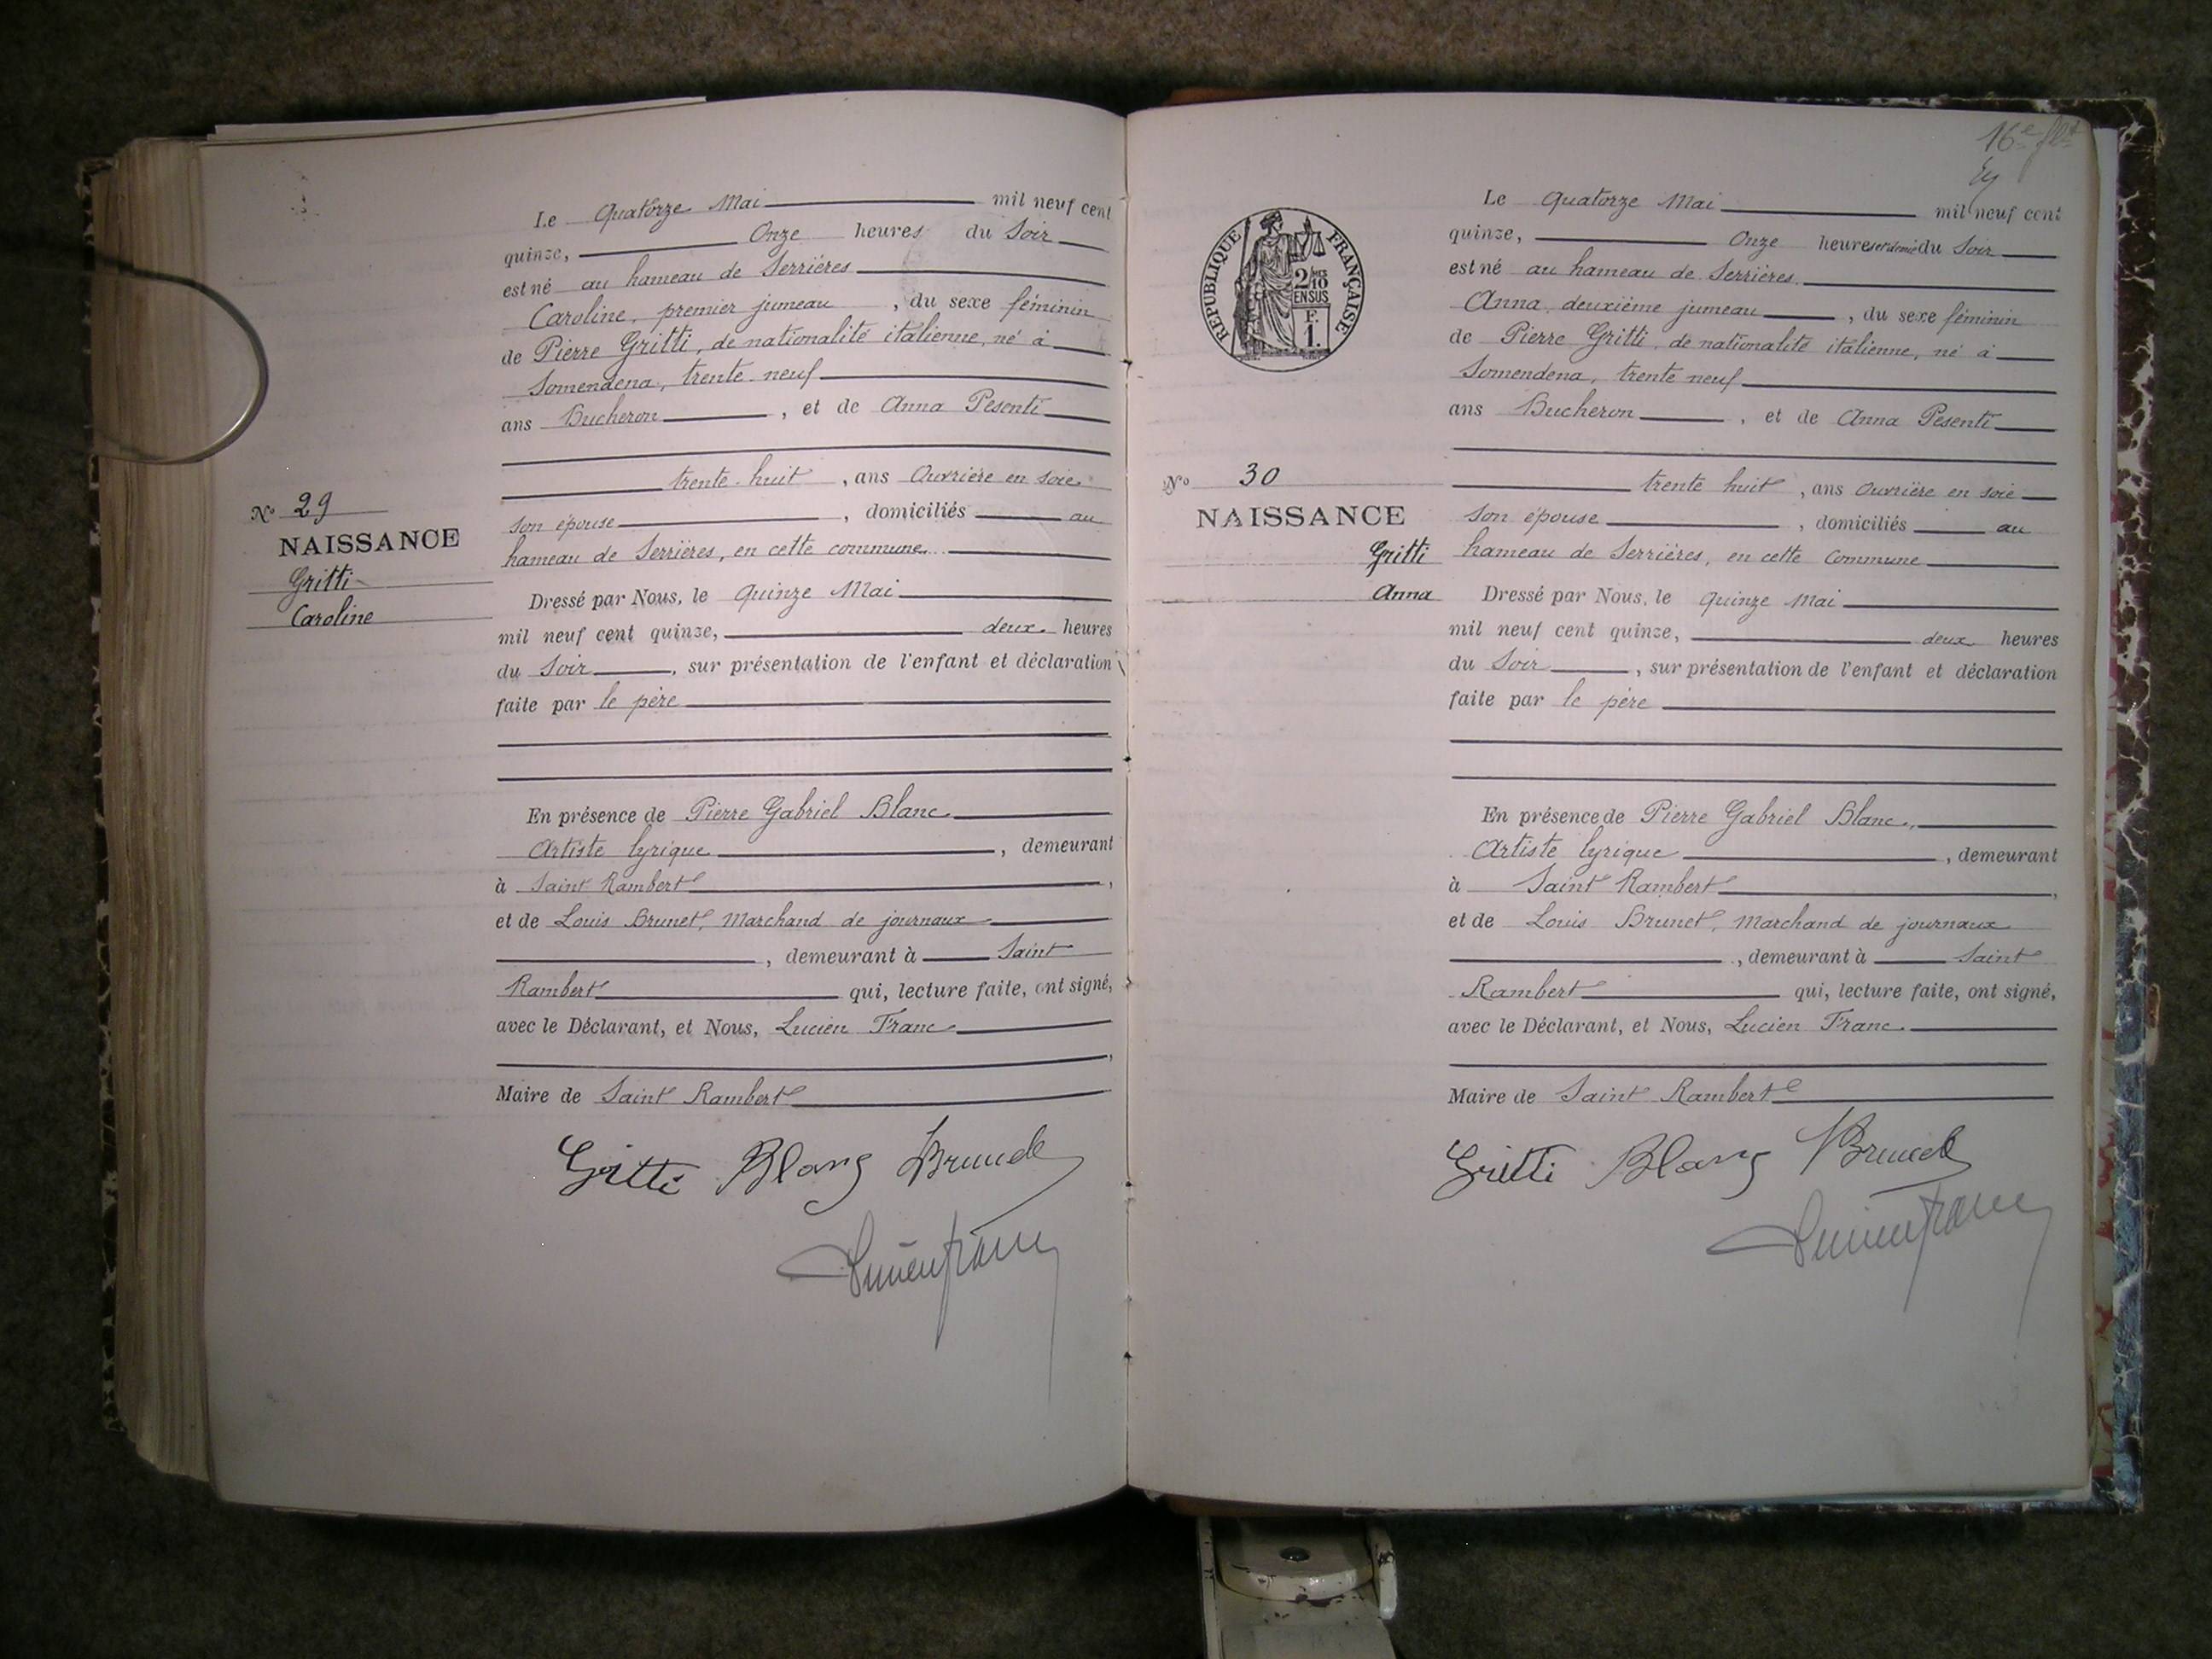 Le Quatorze Mai mil neuf cent
quinze, Onze heures du Soir
est né au hameau de Serrières
Caroline, premier jumeau, du sexe féminin
de Pierre Gritti, de nationalité italienne, né à
Somendena, trente neuf
ans Bucheron, et de Anna Pesenti
trente huit, ans Ouvrière en soie
son épouse, domiciliés au
hameau de Serrières, en cette commune.
Nº 29
NAISSANCE
Gritti
Caroline
Dressé par Nous, le quinze Mai
mil neuf cent quinze, deux heures
du Soir, sur présentation de l'enfant et déclaration
faite par le père
En présence de Pierre Gabriel Blanc
Artiste lyrique, demeurant
à Saint Rambert,
et de Louis Brunet, Marchand de journaux
, demeurant à Saint
Rambert qui, lecture faite, ont signé,
avec le Déclarant, et Nous, Lucien Franc
,
Maire de Saint Rambert
Gritti Blanc Brunet
Lucien Franc
16e
Le Quatorze Mai mil neuf cent
quinze, Onze heures et demie du Soir
est né au hameau de Serrières.
Anna, deuxième jumeau, du sexe féminin
de Pierre Gritti, de nationalité italienne, né à
Somendena, trente neuf
ans Bucheron, et de Anna Pesenti
trente huit, ans Ouvrière en soie
son épouse, domiciliés au
hameau de Serrières, en cette Commune
RÉPUBLIQUE FRANÇAISE
2/10
EN SUS
F.
1.
Nº 30
NAISSANCE
Gritti
Anna
Dressé par Nous, le quinze Mai
mil neuf cent quinze, deux heures
du Soir, sur présentation de l'enfant et déclaration
faite par le père
En présence de Pierre Gabriel Blanc,
Artiste lyrique, demeurant
à Saint Rambert,
et de Louis Brunet, Marchand de journaux
, demeurant à Saint
Rambert qui, lecture faite, ont signé,
avec le Déclarant, et Nous, Lucien Franc.
Maire de Saint Rambert
Gritti Blanc Brunet
Lucien Franc